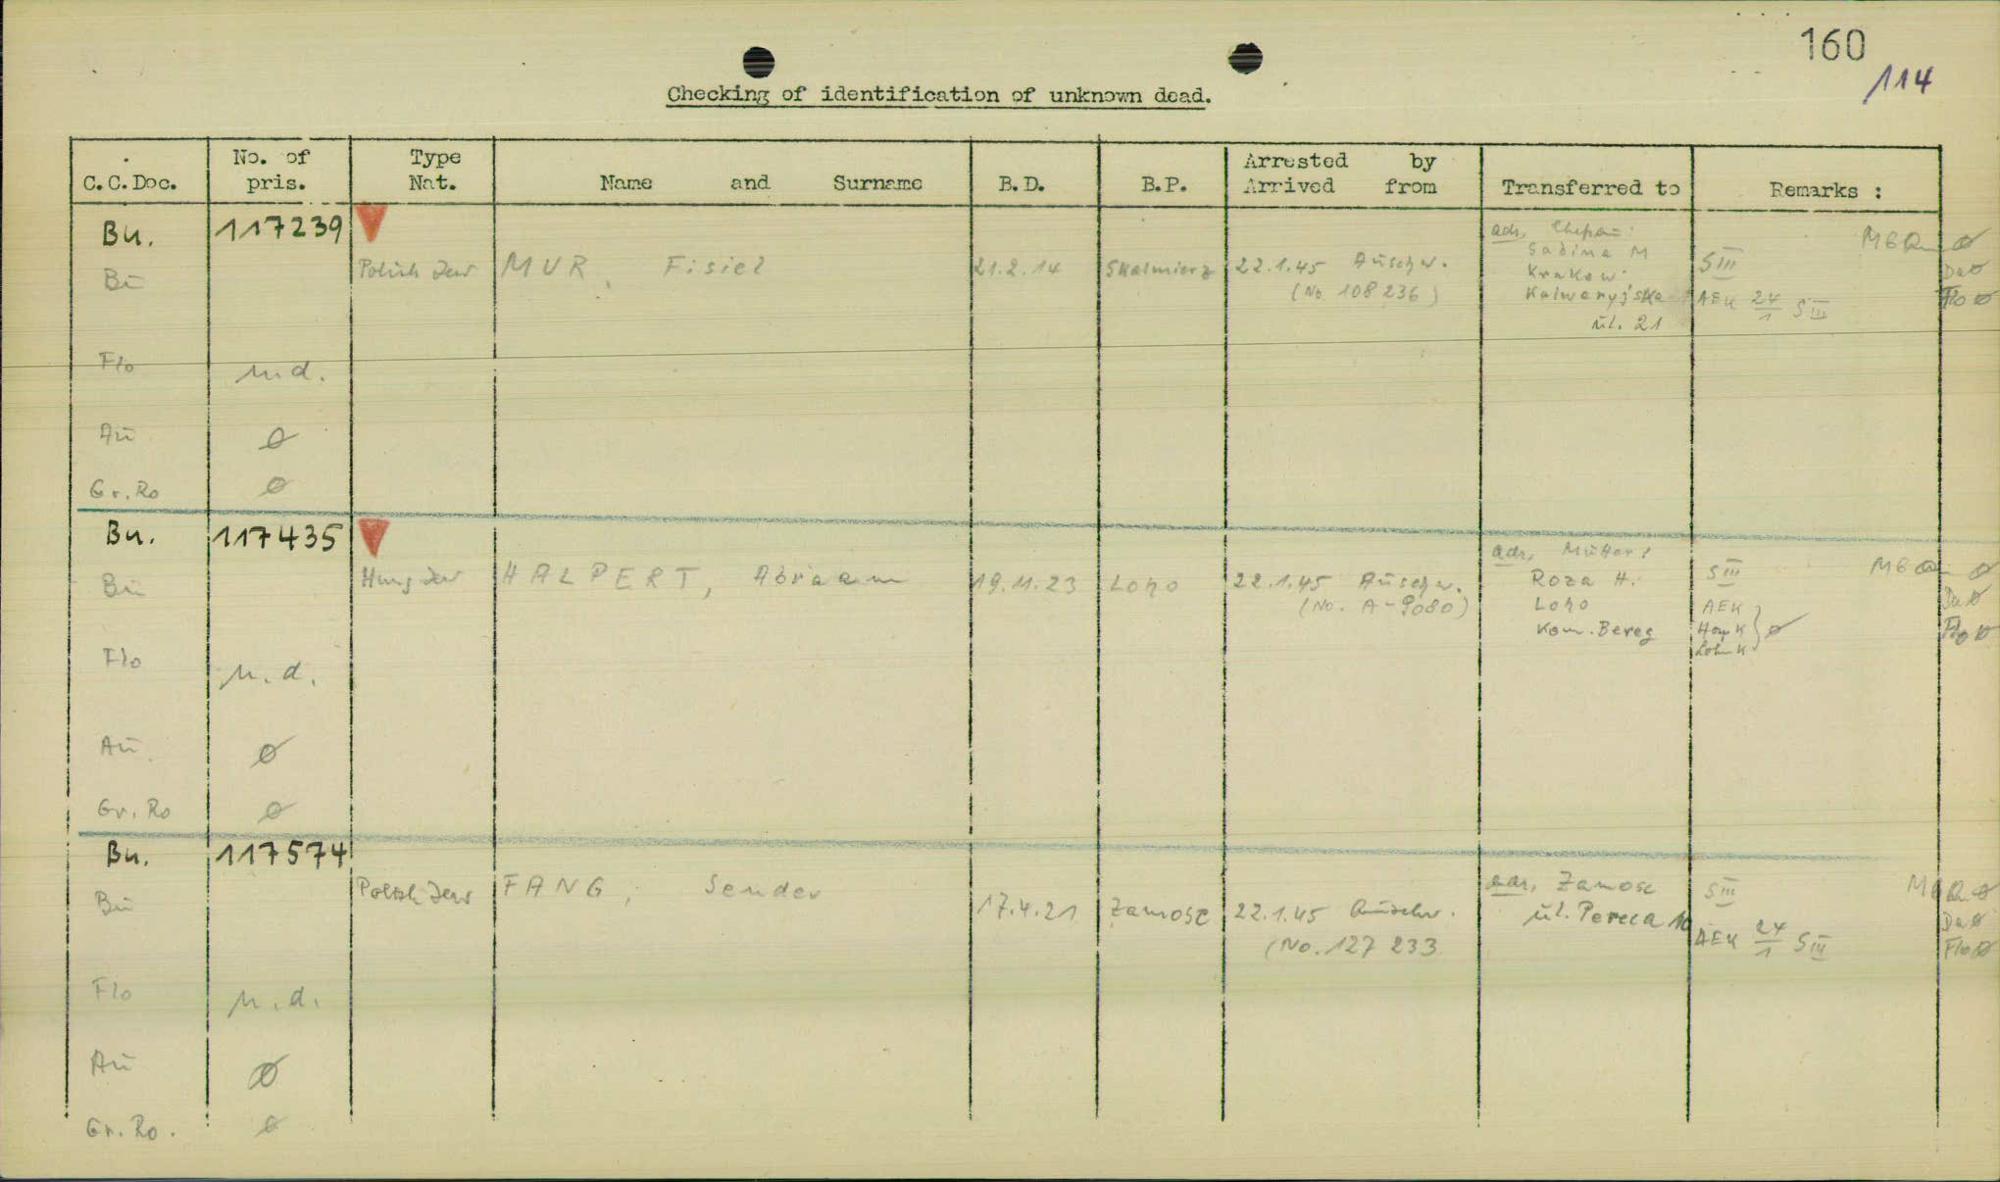 160
114
Checking of identification of unknown dead.
C.C.Doc. No. of pris. Type Nat. Name and Surname B.D. B.P. Arrested by Arrived from Transferred to Remarks :
Bu. 117239
Bu Polish Jew MUR, Fisiel 21.2.14 Skalmierz 22.1.45 Auschw. (No 108 236)
adr. Ehefrau:
Sabina M
Krakow
Kalwaryjska
ul. 21
SIII
AEK 24/1 SIII
Da ø
Flo ø
Flo n.d.
Au ø
Gr. Ro ø
Bu. 117435
Bu Hung Jew HALPERT, Abraam 19.11.23 Loho 22.1.45 Auschw. (No. A-9080)
adr. Mutter:
Roza H.
Loho
Kom. Bereg
SIII
AEK
ø
Da ø
Flo ø
Flo n.d.
Au ø
Gr. Ro ø
Bu. 117574
Bu Polish Jew FANG, Sender 17.4.21 Zamosc 22.1.45 Auschw. (No. 127 233
adr. Zamosc
ul. Pereca 10
SIII
AEK 24/1 SIII
Da ø
Flo ø
Flo n.d.
Au ø
Gr. Ro. ø